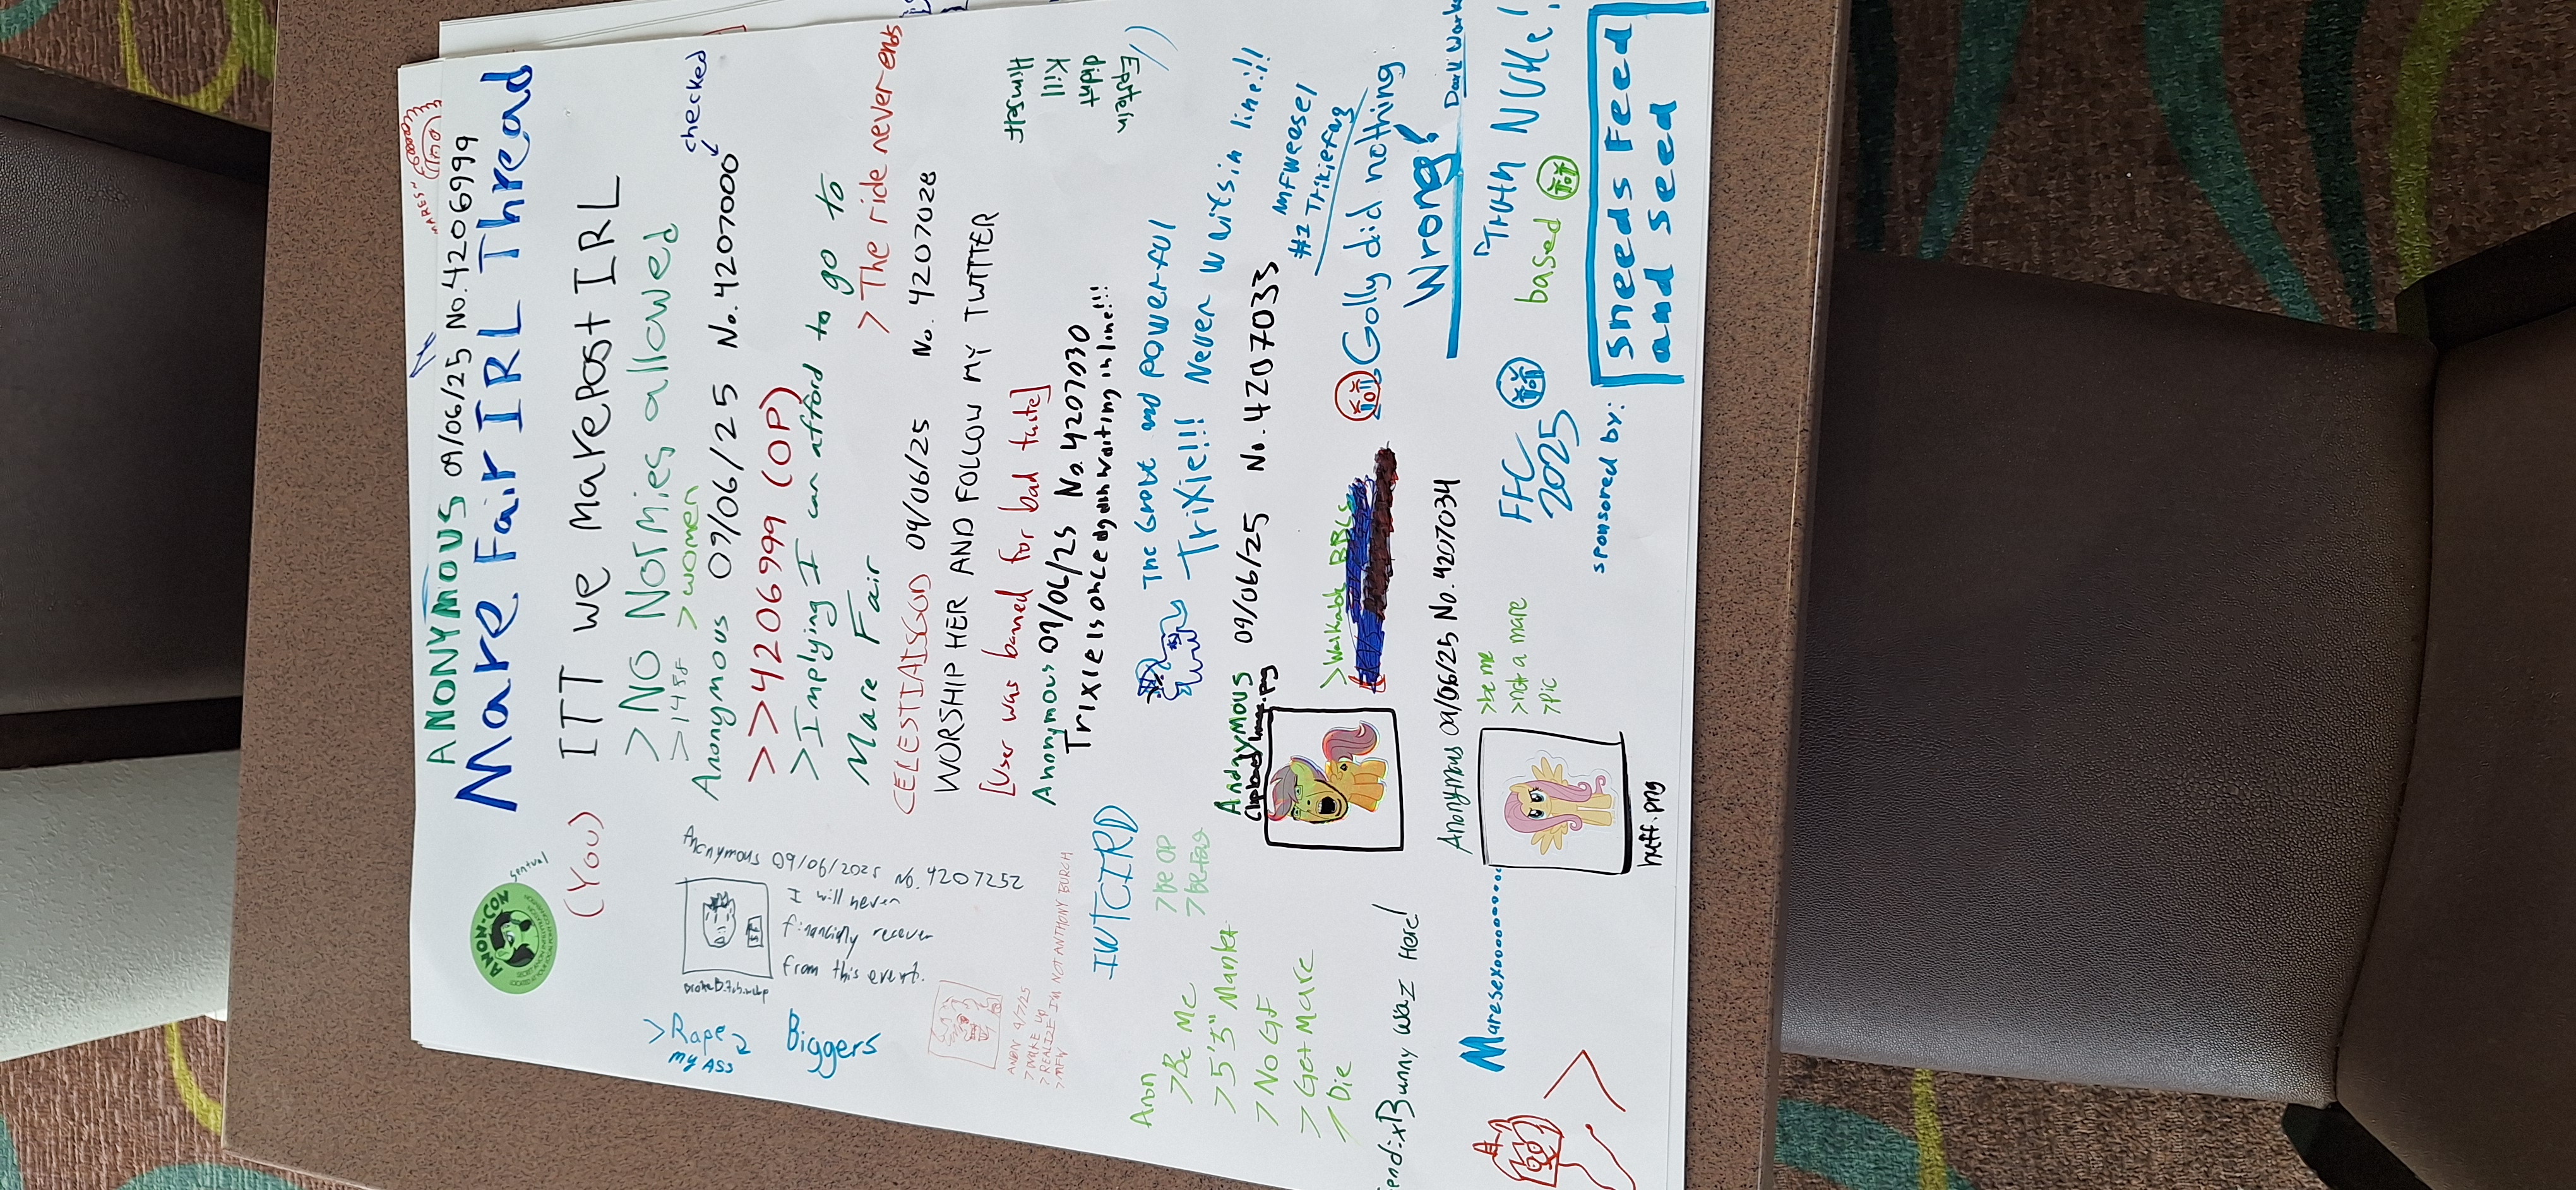 "MARES"
ANONYMOUS 09/06/25 No.4206999
Mare Fair IRL Thread
ANON-CON
(You)
ITT we marepost IRL
>NO Normies allowed
>1458 >women
checked
Anonymous 09/06/25 No.4207000
>>4206999 (OP)
>Implying I can afford to go to
Mare Fair
>The ride never ends
CELESTIAISGOD 09/06/25 No. 4207028
WORSHIP HER AND FOLLOW MY TWITTER
[User was banned for bad taste]
Anonymous 09/06/25 No.4207030
Trixie Is once again waiting in line!!!
The Great and powerful
Trixie!!! Never waits in line!!!
Epstein
didnt
Kill
Himself
Anonymous 09/06/2025 No. 4207252
I will never
financially recover
from this event.
>Rape
my ASS
Biggers
ANON 9/7/25
>WAKE UP
>REALIZE IM NOT ANTHONY BURCH
>MFW
IWTCIRD
>be OP
>be fag
Anon
>Be Me
>5'5" Manlet
>No GF
>Get Mare
>Die
Andzymous 09/06/25 No.4207033
Clipboard Image.png
>Walkable
MFWeasel
#1 Trixiefag
Golly did nothing
Wrong!
Bunny waz Here!
Anonymous 09/06/25 No.4207034
>be me
>not a mare
>pic
huff.png
FFC
2025
Truth NUKe!
based
sponsored by:
Sneeds Feed
and Seed